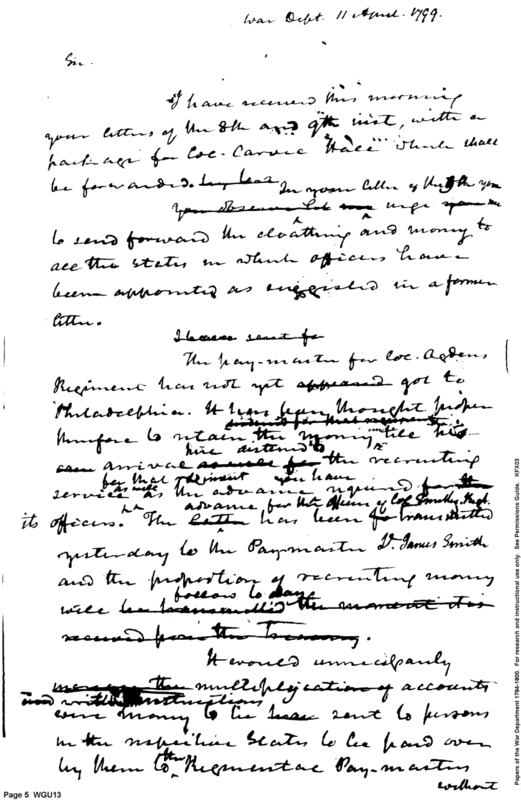 War Dept. 11 April. 1799.
Sir.
I have received this morning
your letters of the 8th and 9th inst, with a
package for Col. Carvel Hall which shall
be forwarded.
In your letter of the 8th you
you observe urge me
to send forward the cloathing and money to
all the States in which officers have
been appointed as suggested in a former
letter.
I have sent for
The pay-master for Col. Ogdens
Regiment has not yet appeared got to
Philadelphia. It has been thought proper
therefore to retain the money till his
arrival destined for the recruiting
for that regiment you have
service as well as the advance required for the
its officers. The advance for the officers of Col Smiths Regt.
letter has been transmitted
yesterday to the Pay-master Dr. James Smith
and the proportion of recruiting money
will follow to day
be transmitted the moment it is
received from the Treasury.
It would unnecessarily
multiplication of accounts
were money to be sent to persons
in the respective States to be paid over
by them to the Regimental Pay-masters
without
Page 5 WGU13
Papers of the War Department 1784-1800. For research and instructional use only. See Permissions Guide. KFX03